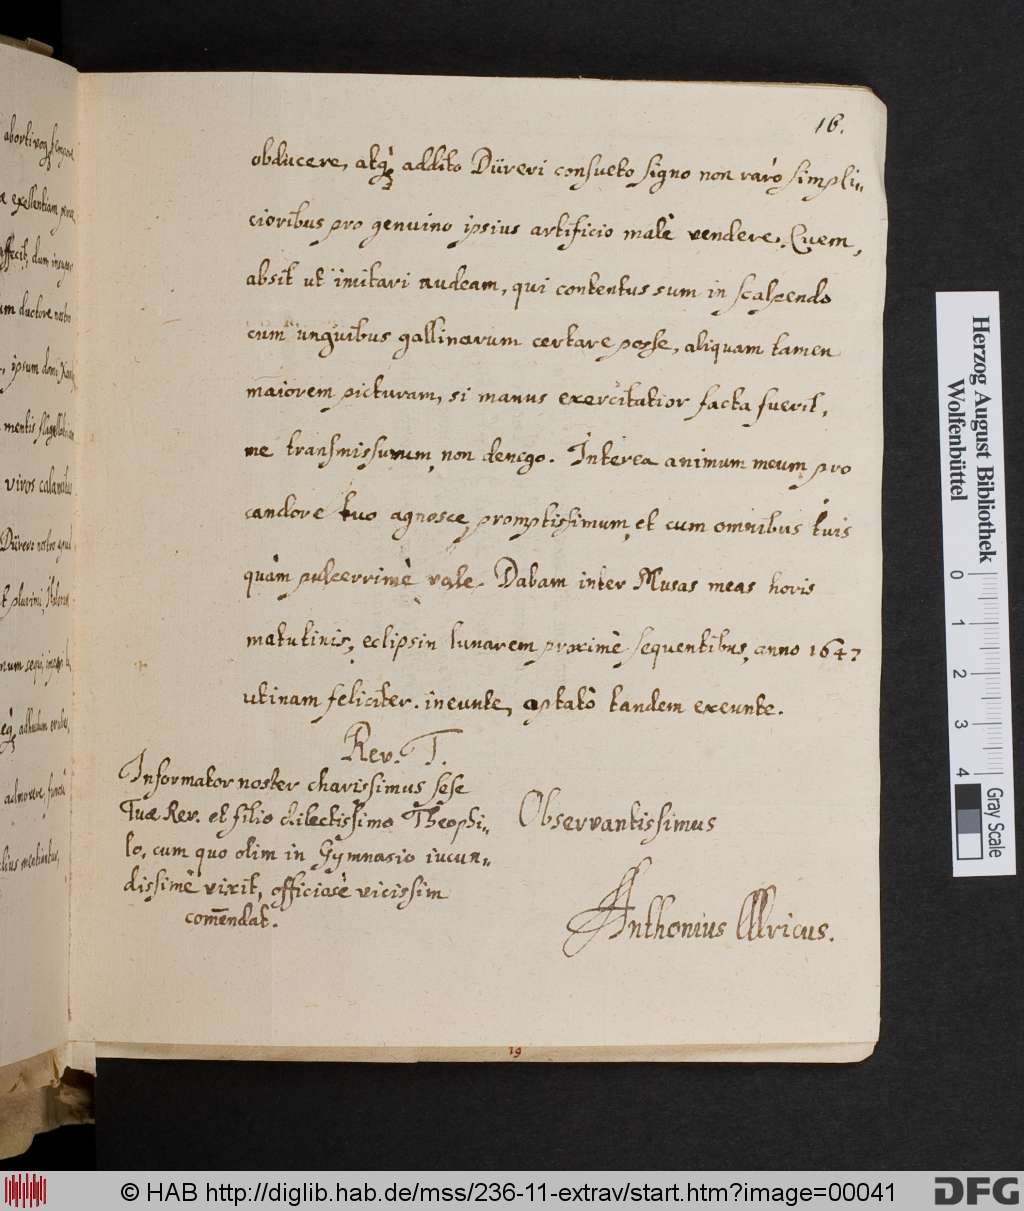 16.
obducere, atq; addito Düreri consueto signo non rarò simpli-
cioribus pro genuino ipsius artificio malè vendere. Quem,
absit ut imitari audeam, qui contentus sum in scalpendo
cum unguibus gallinarum certare posse, aliquam tamen
maiorem picturam, si manus exercitatior facta fuerit,
me transmissurum, non denego. Interea animum meum pro
candore tuo agnosce promptissimum, et cum omnibus tuis
quàm pulcerrimè vale. Dabam inter Musas meas horis
matutinis, eclipsin lunarem proximè sequentibus, anno 1647
utinam feliciter ineunte, aptatò tandem exeunte.
Rev. T.
Informator noster charissimus sese
Tuæ Rev. et filio dilectissimo Theophi-
lo, cum quo olim in Gymnasio iucun-
dissimè vixit, officiosè vicissim
com̄endat.
Observantissimus
Anthonius Ulricus.
19
abortivoq
excellentiam
affecit, dum
um ductore nostro
ipsum domi
mentis
viros
Dürero nostro
et plurimi,
num sequi,
adhuc
admovere,
Herzog August Bibliothek
Wolfenbüttel
0 1 2 3 4
Gray Scale
© HAB http://diglib.hab.de/mss/236-11-extrav/start.htm?image=00041
DFG